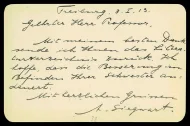 Freiburg 8.I.13.
Geehrter Herr Professor.
Mit meinem besten Dank
sende ich Ihnen das Litera-
turverzeichnis zurück. Ich
hoffe, dass die Besserung im
Befinden Ihrer Schwester an-
dauert.
Mit herzlichen Grüssen